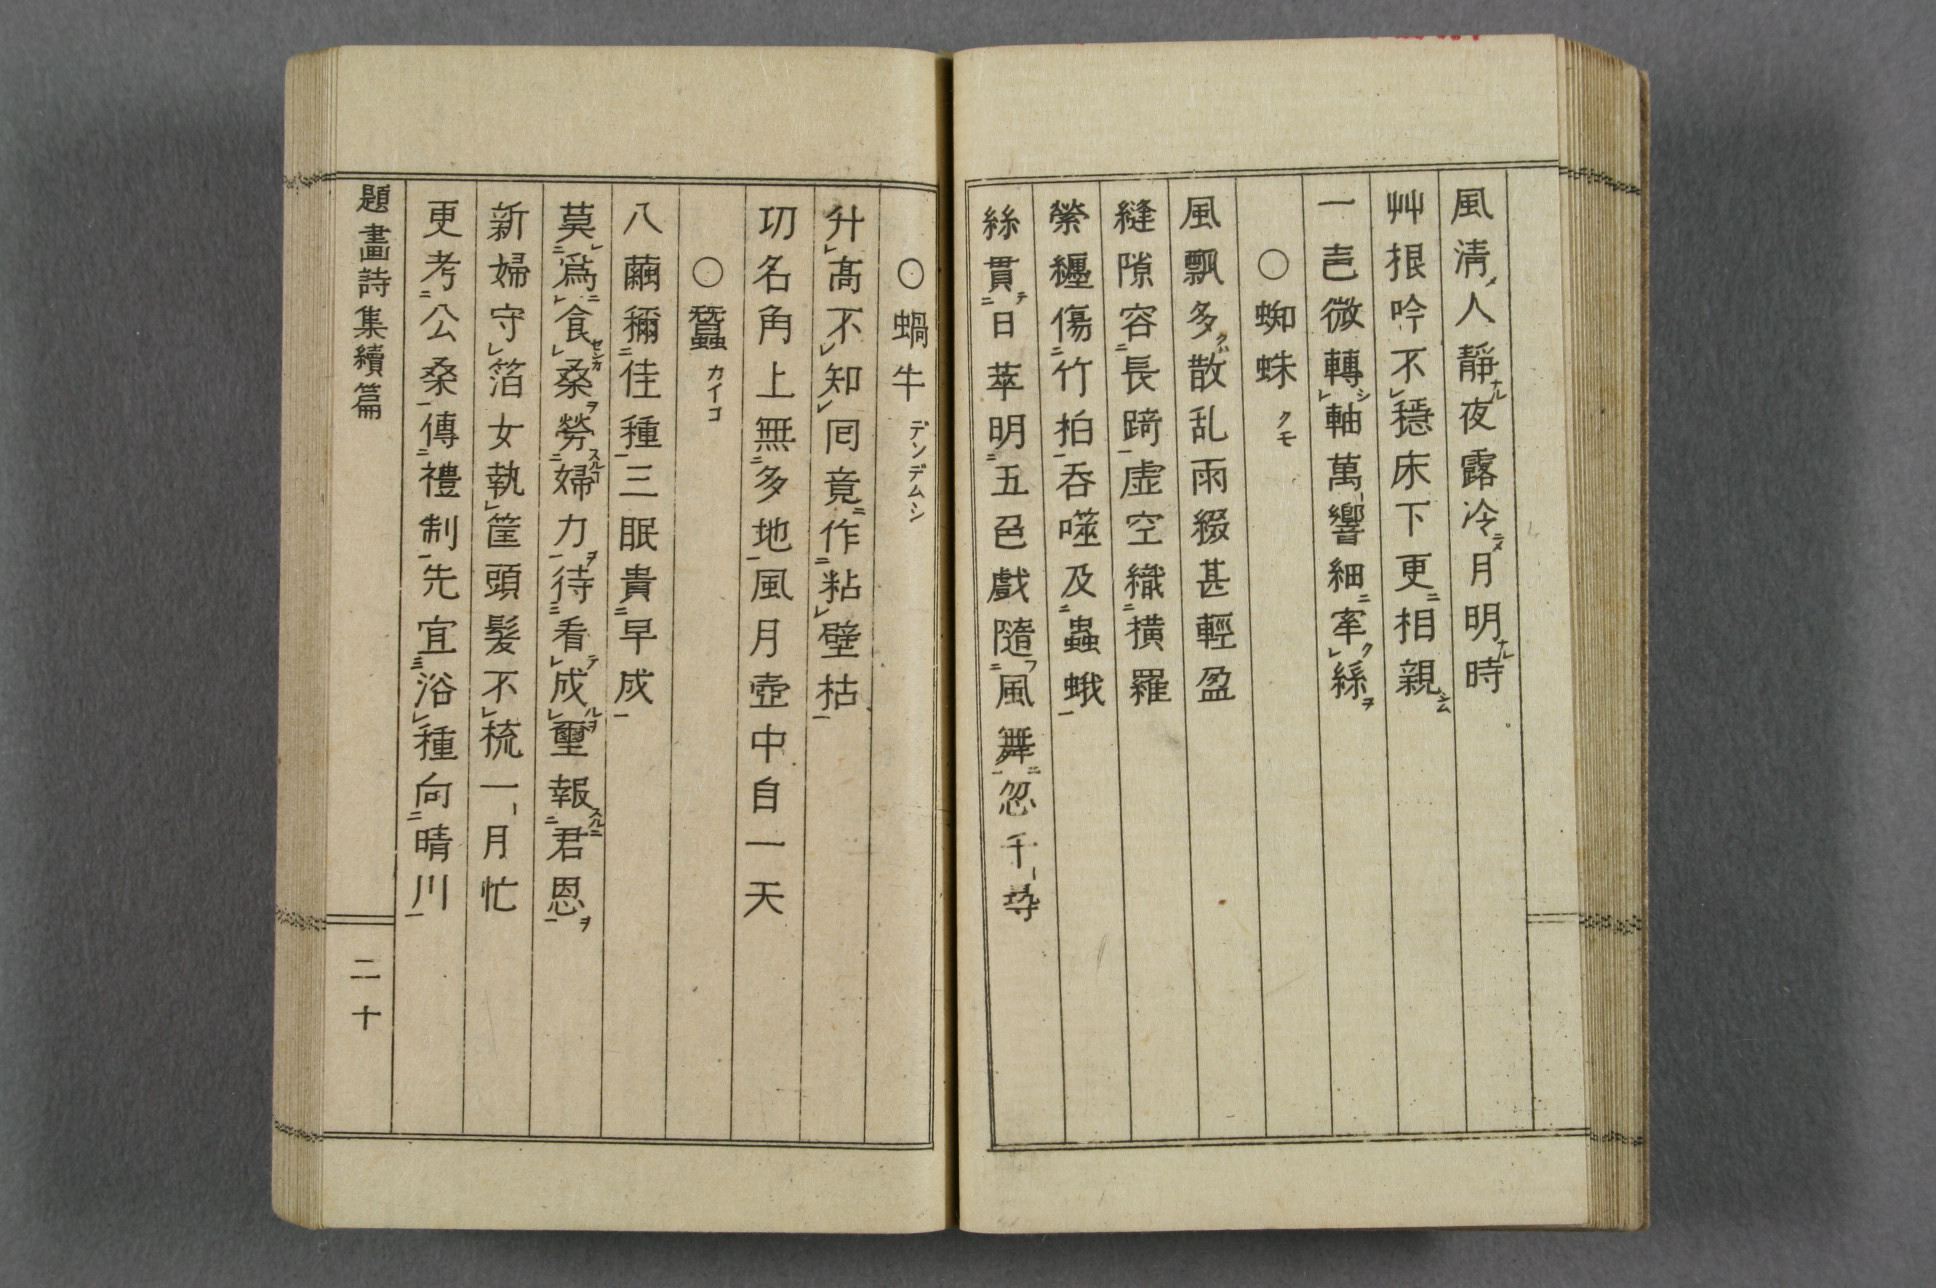 風清人靜夜露冷月明時
艸根吟不穩床下更相親
一声微轉軸萬響細牽絲
○蜘蛛 クモ
風飄多散乱雨綴甚輕盈
縫隙容長踦虚空織横羅
縈纒傷竹柏呑噬及蟲蛾
絲貫日華明五色戲隨風舞忽千尋
○蝸牛 デンデムシ
升髙不知囘竟作粘壁枯
功名角上無多地風月壺中自一天
○蠶 カイコ
八繭稱佳種三眠貴早成
莫爲食桑勞婦力待看成璽報君恩
新婦守箔女執筐頭髮不梳一月忙
更考公桑傳禮制先宜浴種向晴川
題畫詩集續篇
二十